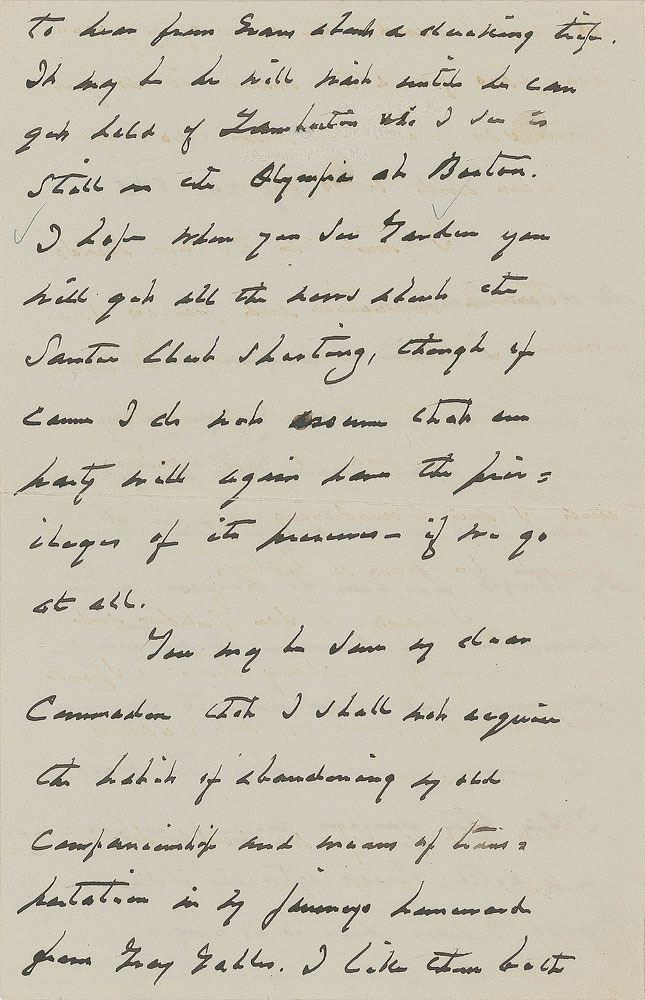 to hear from Evans about a ducking trip.
It may be he will wait until he can
get hold of Lamberton who I see is
still on the Olympia at Boston.
I hope when you see Yawkey you
will get all the news about the
Santee Club shooting, though of
course I do not assume that our
party will again have the priv=
ileges of its preserves - if we go
at all.
You may be sure my dear
Commodore that I shall not acquire
the habit of abandoning my old
companionship and means of trans=
portation in my journeys homeward
from Gray Gables. I like them both